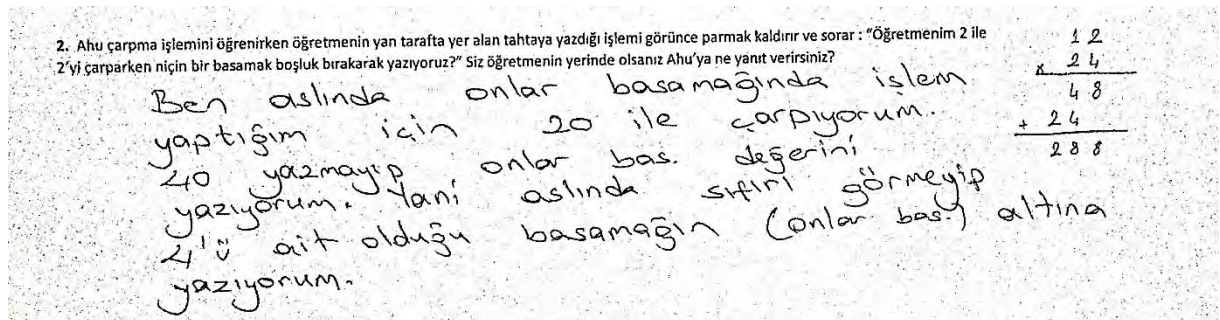 2. Ahu çarpma işlemini öğrenirken öğretmenin yan tarafta yer alan tahtaya yazdığı işlemi görünce parmak kaldırır ve sorar : "Öğretmenim 2 ile
2'yi çarparken niçin bir basamak boşluk bırakarak yazıyoruz?" Siz öğretmenin yerinde olsanız Ahu'ya ne yanıt verirsiniz?
Ben aslında onlar basamağında işlem
yaptığım için 20 ile çarpıyorum.
40 yazmayıp onlar bas. değerini
yazıyorum. Yani aslında sıfırı görmeyip
4'ü ait olduğu basamağın (onlar bas.) altına
yazıyorum.
12
x 24
48
+ 24
288